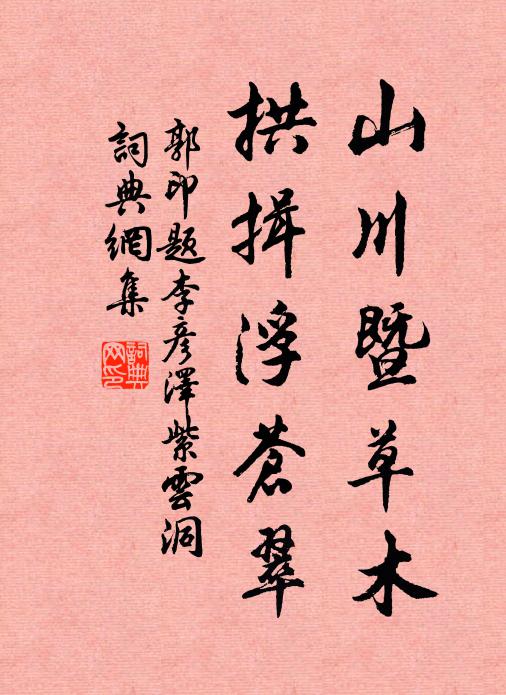 山川暨草木
拱揖浮蒼翠
郭印题李彦澤紫雲洞
詞典網集
詞典網印